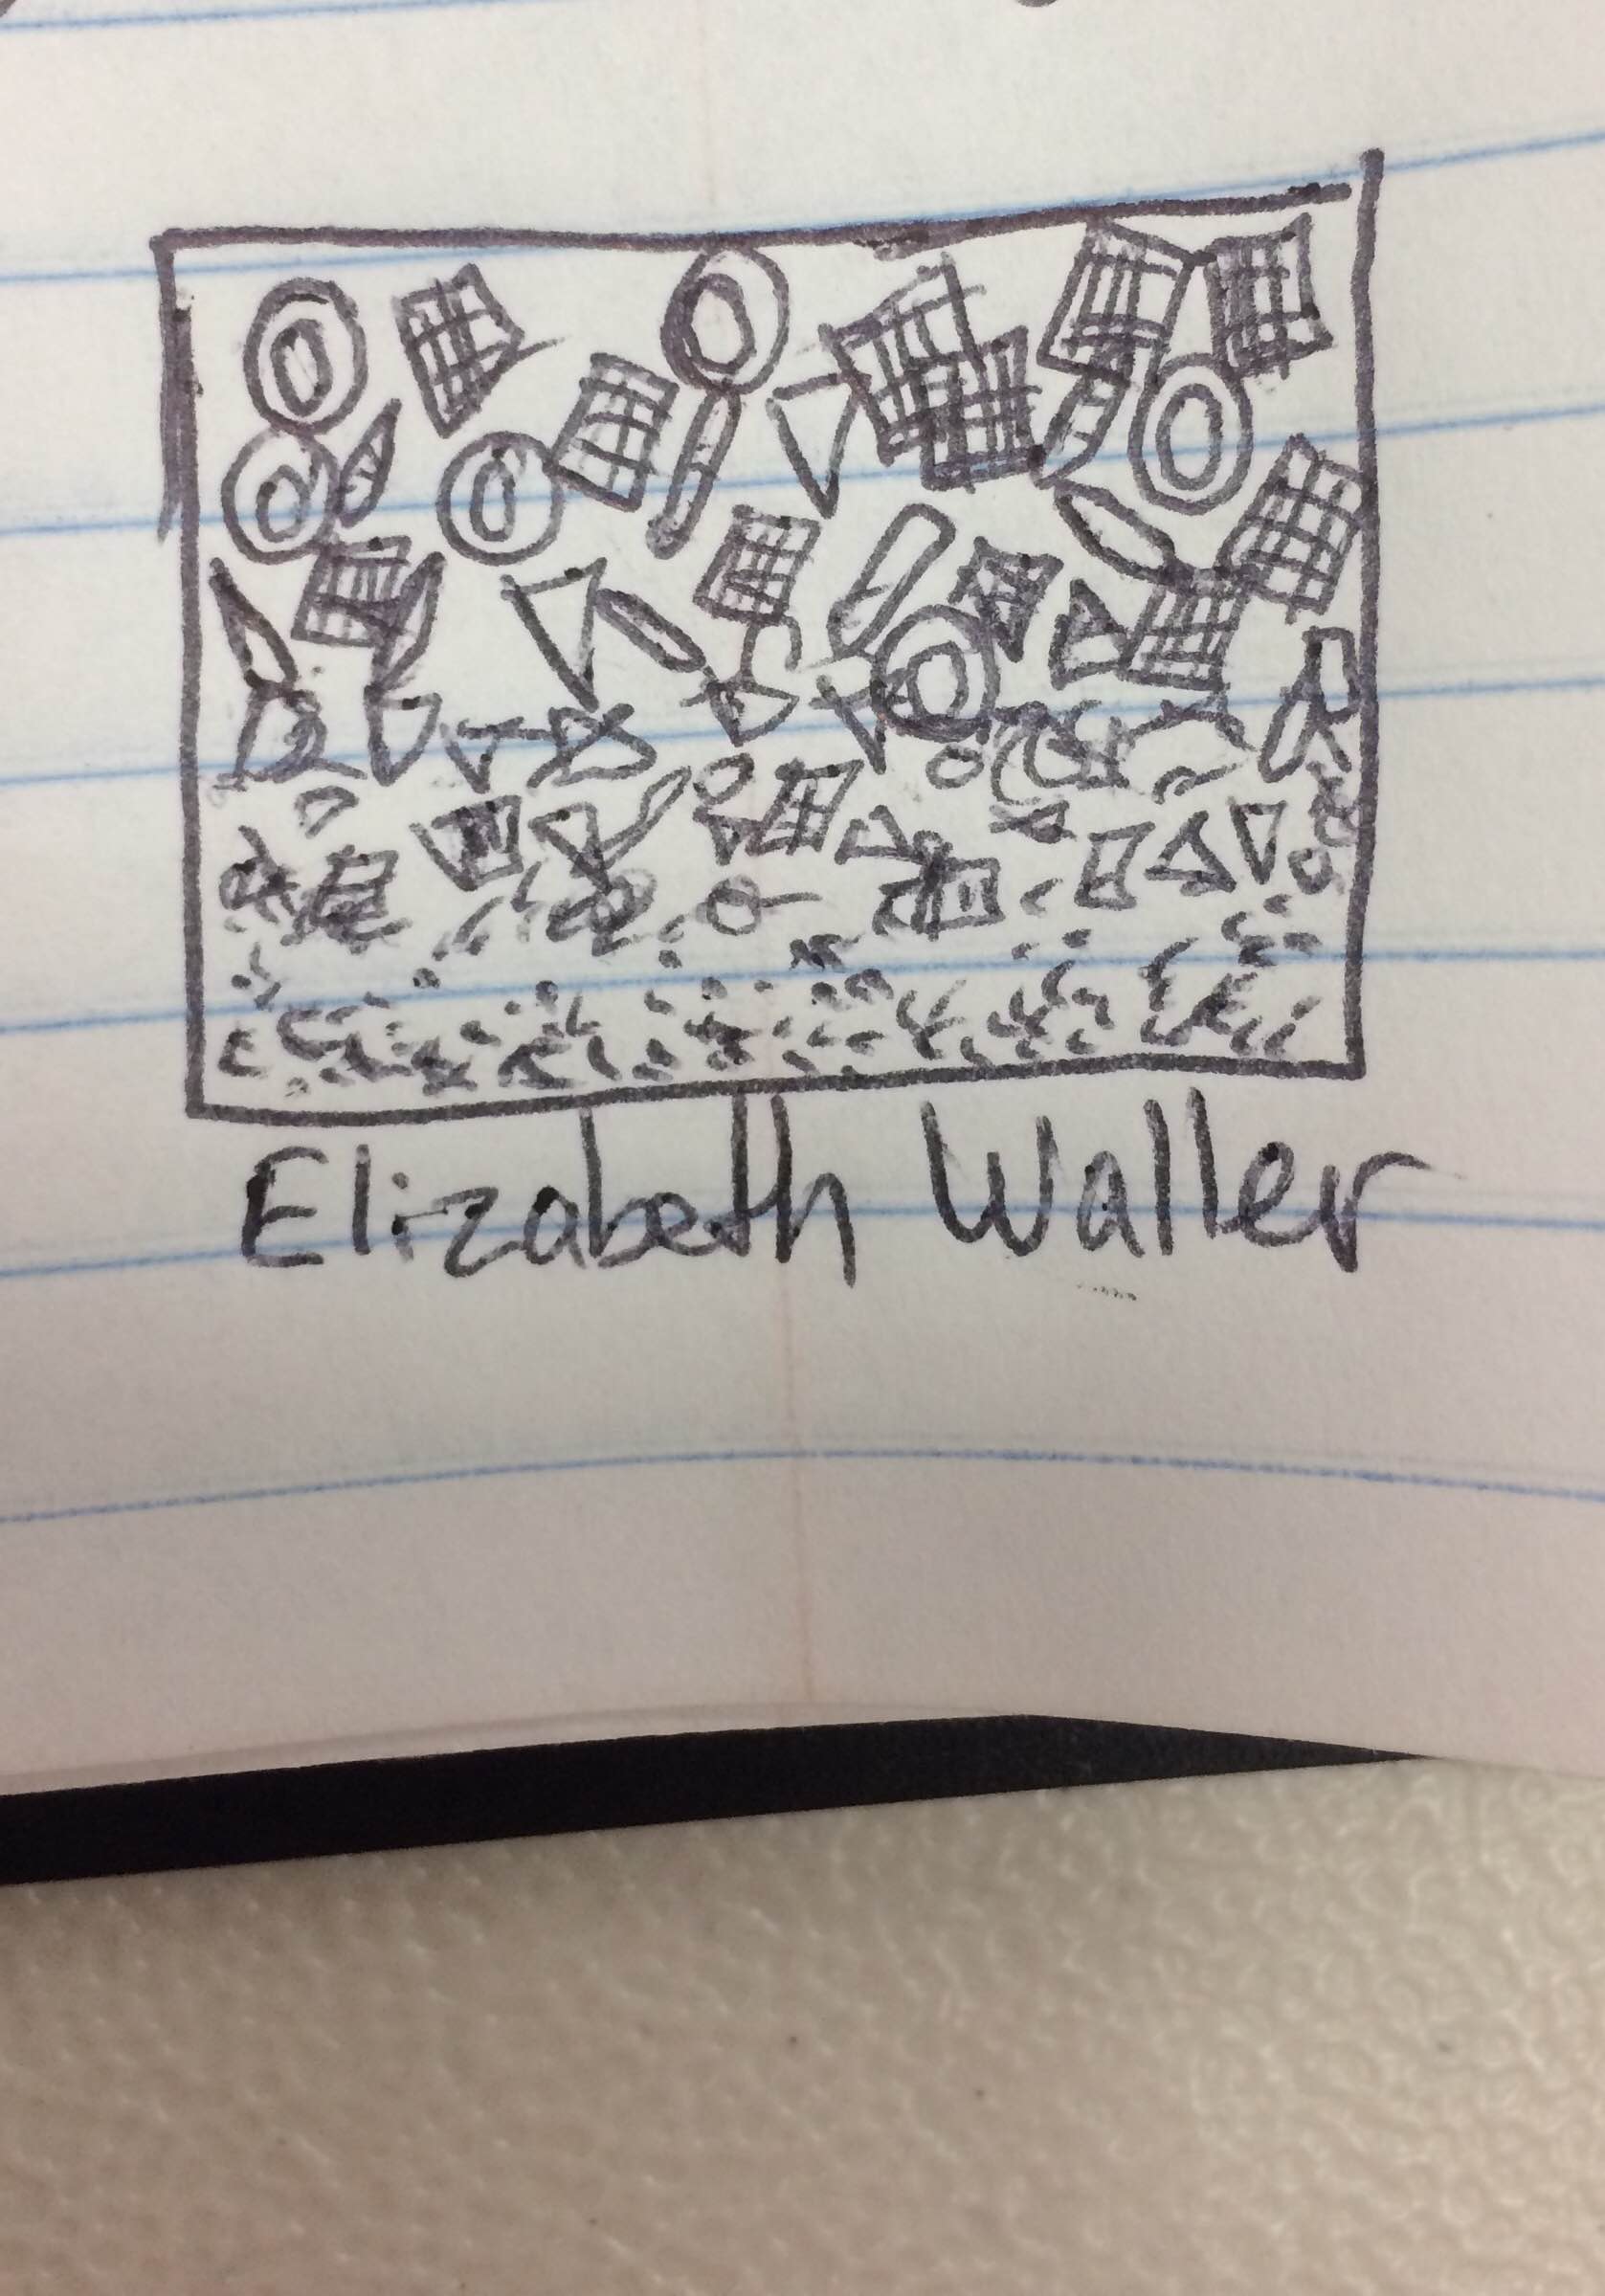 Elizabeth Waller